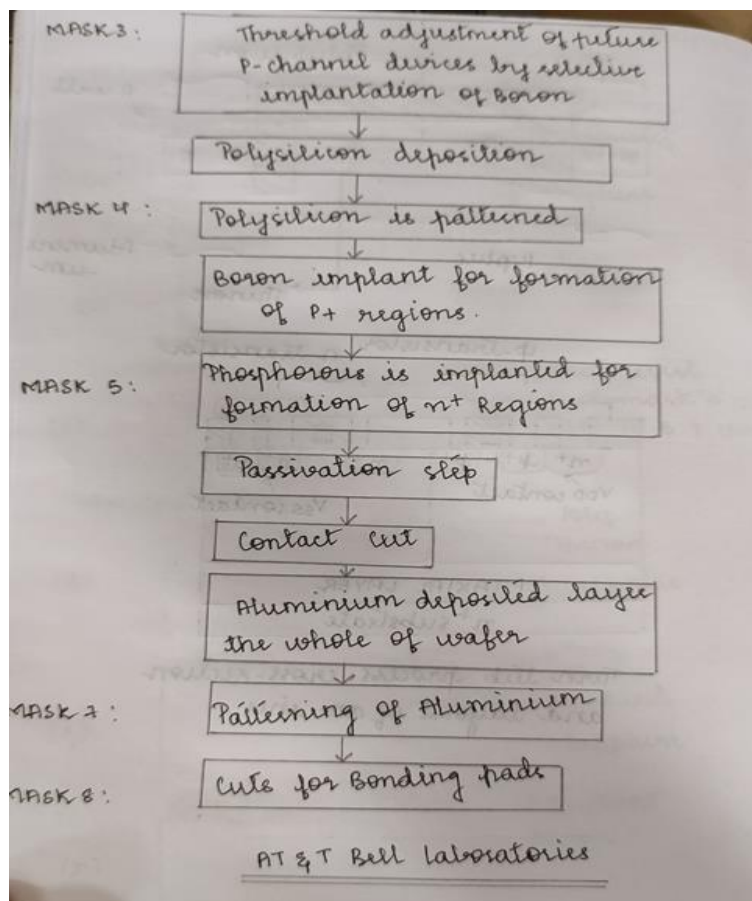 MASK 3:
Threshold adjustment of future
P-channel devices by selective
implantation of Boron
Polysilicon deposition
MASK 4:
Polysilicon is patterned
Boron implant for formation
of P+ regions.
MASK 5:
Phosphorous is implanted for
formation of n+ Regions
Passivation step
Contact cut
Aluminium deposited layer
the whole of wafer
MASK 7:
Patterning of Aluminium
MASK 8:
Cuts for Bonding pads
AT & T Bell laboratories